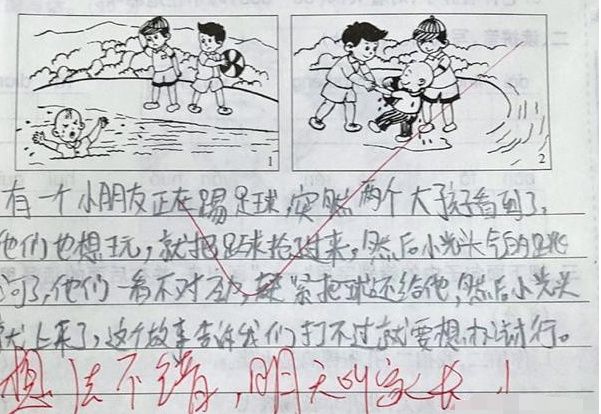 1
2
有一个小朋友正在踢足球,突然两个大孩子看到了,
他们也想玩,就把足球抢过来,然后小光头气的跳
河了,他们一看不对立,赶紧把球还给他,然后小光头
就上来了,这个故事告诉我们打不过就要想办法行。
想法不错,明天叫家长!